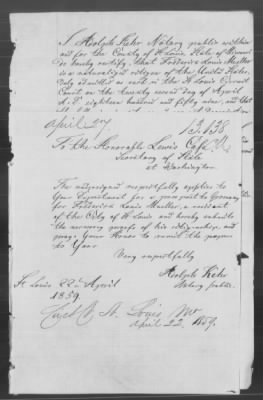 I Adolph Kehr Notary public within
and for the County of St Louis, State of Missouri
do hereby certify, that Frederick Louis Mueller
is a naturalized citizen of the United States,
duly admitted as such in the St Louis Circuit
Court on the twenty second day of April
A. D. eighteen hundred and fifty nine, and that
April 27 13,138
To the Honorable Lewis Cass
Secretary of State
at Washington
The undersigned respectfully applies to
Your Department for a pass port to Germany
for Frederick Louis Mueller, a resident
of the City of St Louis and hereby submits
the necessary proofs of his citizenship and
prays Your Honor to remit the papers
to Your
Very respectfully
Adolph Kehr
Notary public
St Louis 22d April
1859.
St. Louis Mo
April 22. 1859.